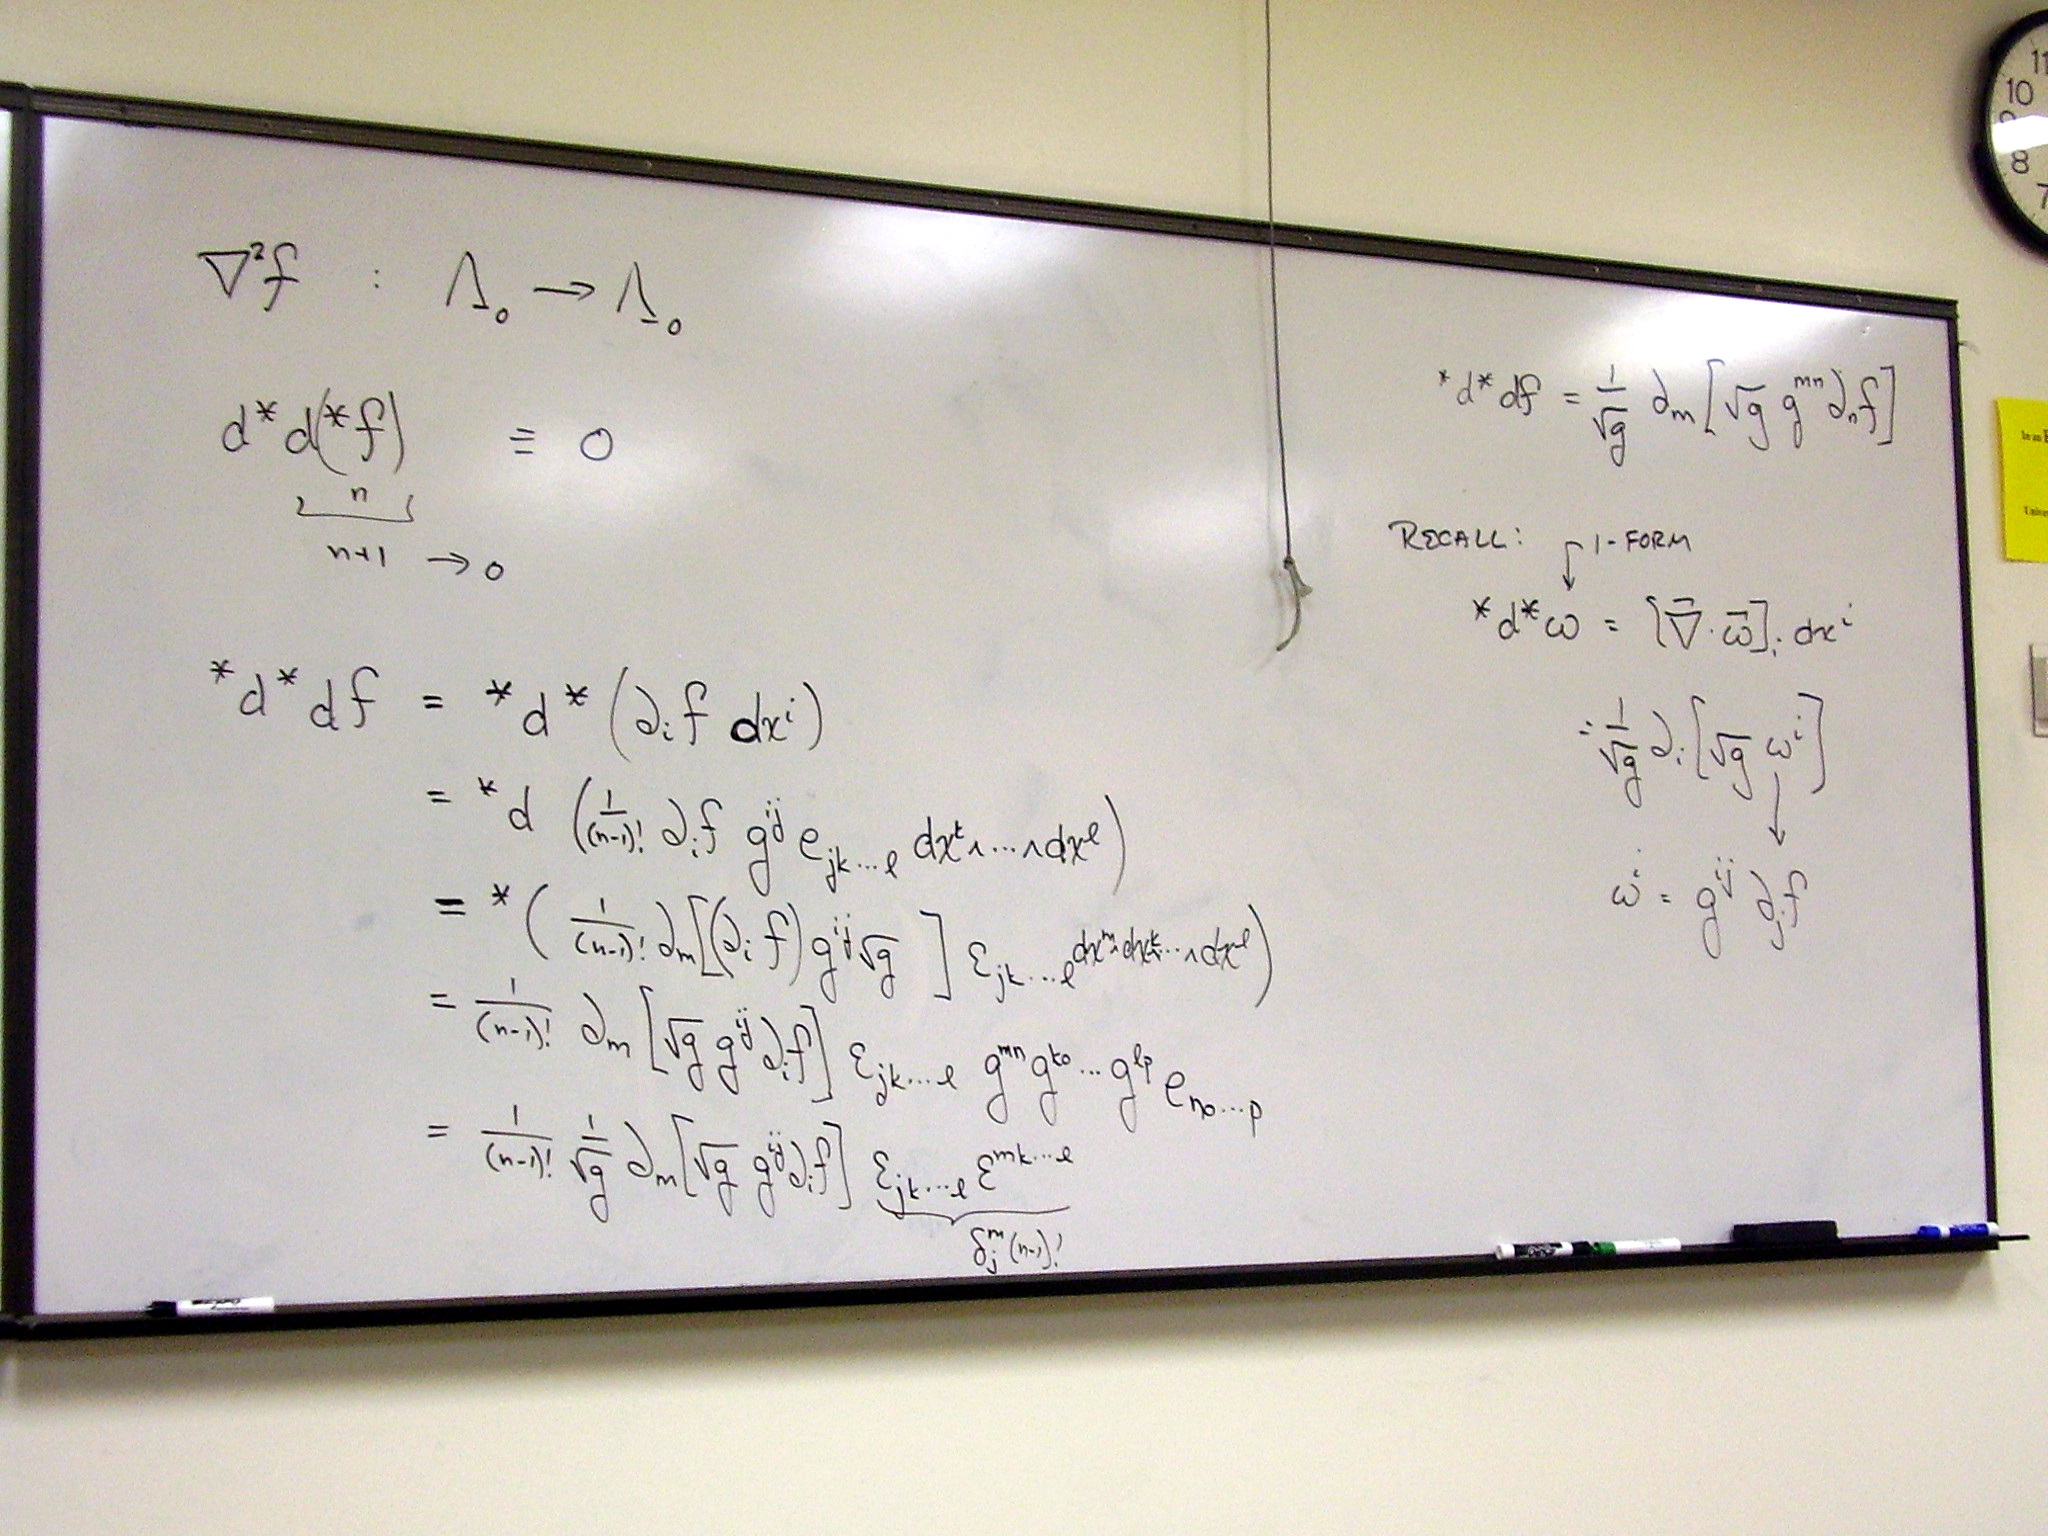 ∇²f : Λ₀ → Λ₀
d*d(*f) ≡ 0
n
n+1 → 0
*d*df = *d*(∂ᵢf dxⁱ)
= *d (1/(n-1)! ∂ᵢf g^{ij} e_{jk...l} dx^k∧...∧dx^l)
= *( 1/(n-1)! ∂_m[(∂ᵢf)g^{ij}√g ] ε_{jk...l} dx^m∧dx^k∧...∧dx^l)
= 1/(n-1)! ∂_m[√g g^{ij}∂ᵢf] ε_{jk...l} g^{mn}g^{ko}...g^{lp} e_{no...p}
= 1/(n-1)! 1/√g ∂_m[√g g^{ij}∂ᵢf] ε_{jk...l} ε^{mk...l}
δ^m_j (n-1)!
*d*df = 1/√g ∂_m[√g g^{mn}∂_nf]
RECALL: 1-FORM
*d*ω = [∇·ω]ᵢ dxⁱ
= 1/√g ∂ᵢ[√g ωⁱ]
ωⁱ = g^{ij} ∂ⱼf
11
10
9
8
7
In an
Unive
EXPO